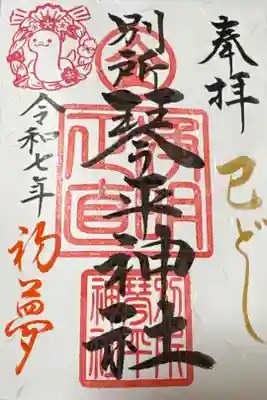 奉拝
巳どし
別所
琴平神社
令和七年
初夢